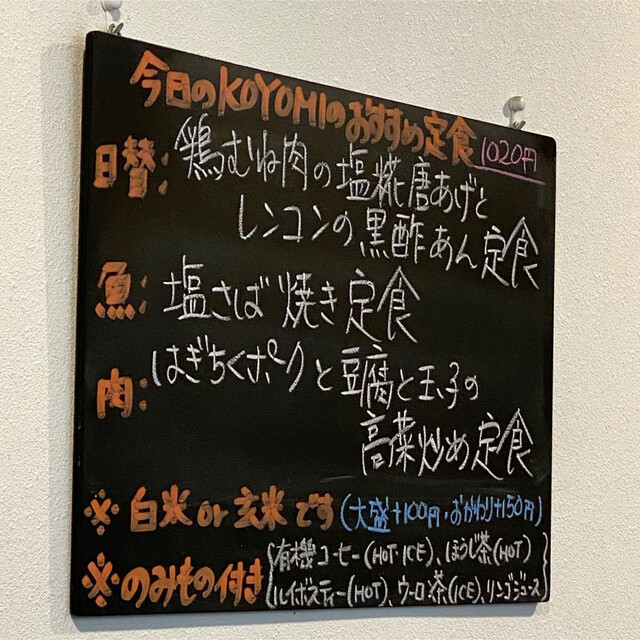 今日のKOYOMIのおすすめ定食 1020円
日替: 鶏むね肉の塩糀唐あげと
レンコンの黒酢あん定食
魚: 塩さば焼き定食
肉: はぎちくポークと豆腐と玉子の
高菜炒め定食
※白米or玄米です(大盛+100円・おかわり+150円)
※のみもの付き(有機コーヒー(HOT・ICE)、ほうじ茶(HOT)
ルイボスティー(HOT)、ウーロン茶(ICE)、リンゴジュース)